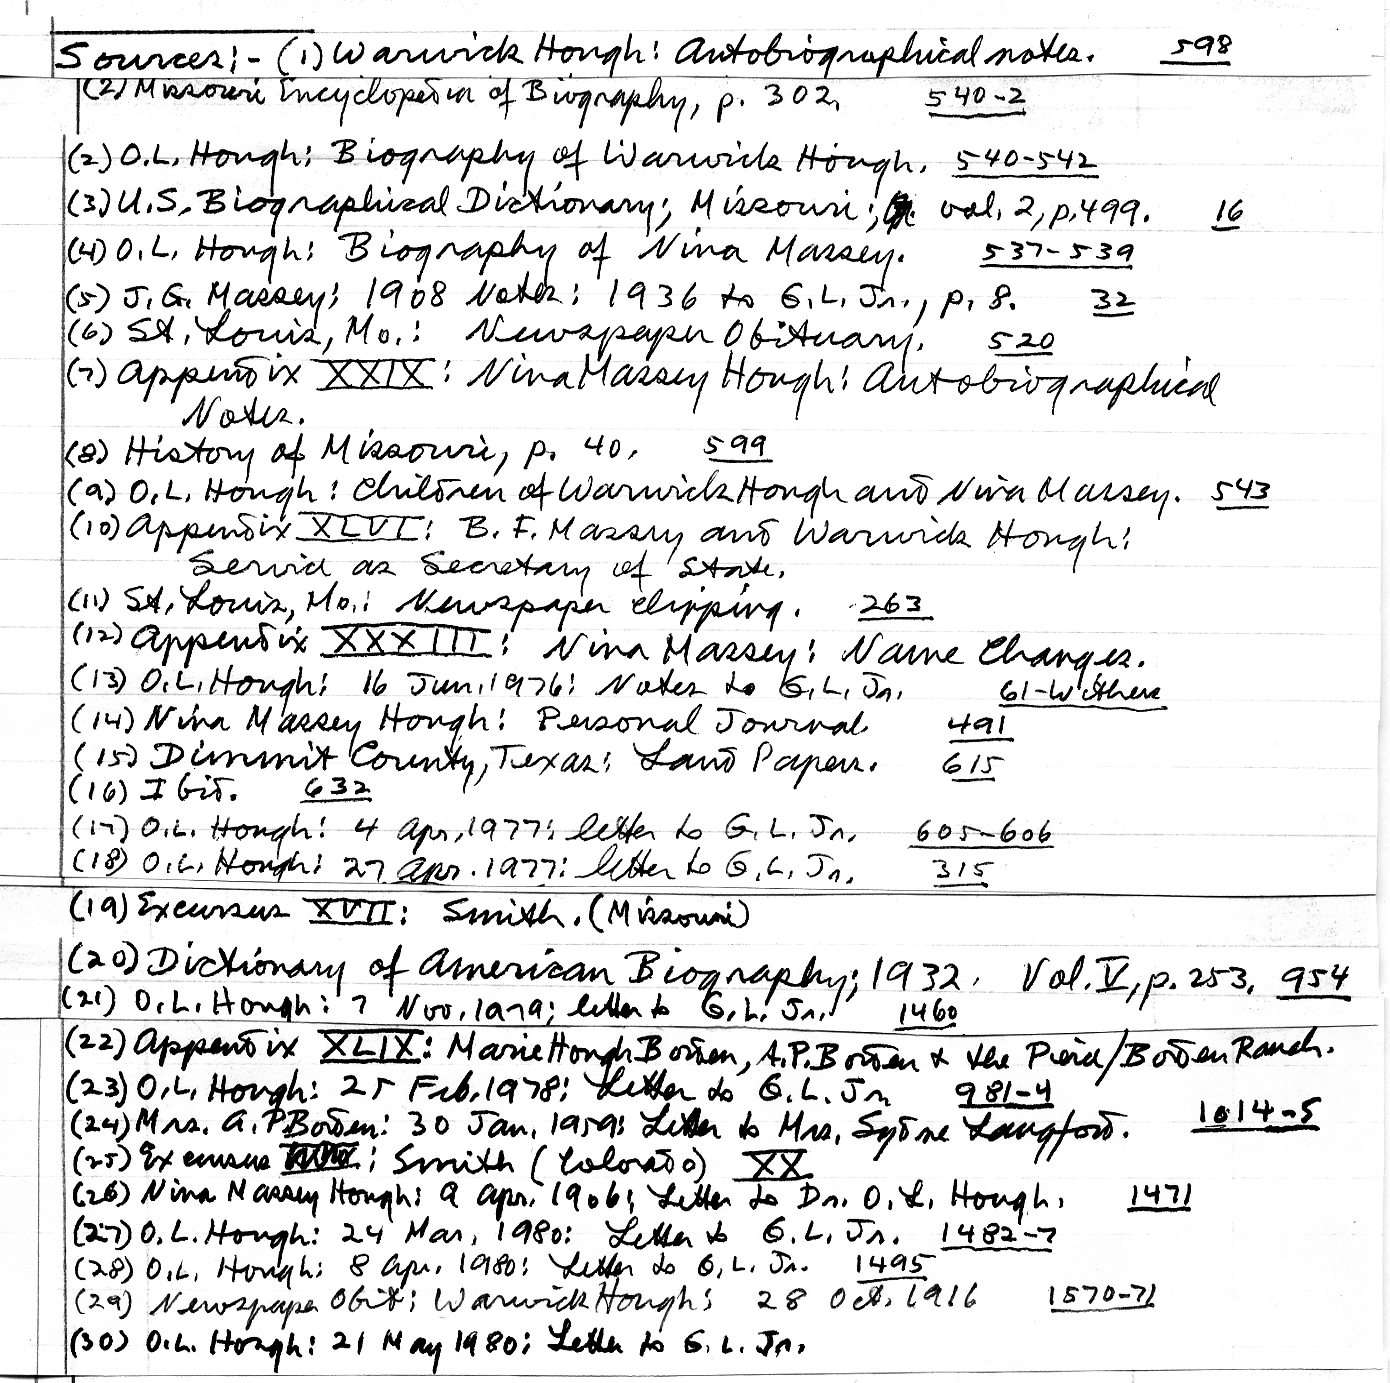 Sources:- (1) Warwick Hough: Autobiographical notes. 598
(2) Missouri Encyclopedia of Biography, p. 302, 540-2
(2) O.L. Hough: Biography of Warwick Hough. 540-542
(3) U.S. Biographical Dictionary; Missouri; vol. 2, p. 499. 16
(4) O.L. Hough: Biography of Nina Massey. 537-539
(5) J.G. Massey: 1908 Notes: 1936 to G.L. Jr., p. 8. 32
(6) St. Louis, Mo.: Newspaper Obituary. 520
(7) Appendix XXIX: Nina Massey Hough: Autobiographical
Notes.
(8) History of Missouri, p. 40. 599
(9) O.L. Hough: Children of Warwick Hough and Nina Massey. 543
(10) Appendix XLVI: B.F. Massey and Warwick Hough:
Service as Secretary of State.
(11) St. Louis, Mo.: Newspaper clipping. 263
(12) Appendix XXXIII: Nina Massey: Name Changes.
(13) O.L. Hough: 16 Jun. 1976: Notes to G.L. Jr. 61-Withers
(14) Nina Massey Hough: Personal Journal. 491
(15) Dimmit County, Texas: Land Papers. 615
(16) Ibid. 632
(17) O.L. Hough: 4 Apr. 1977: letter to G.L. Jr. 605-606
(18) O.L. Hough: 27 Apr. 1977: letter to G.L. Jr. 315
(19) Excursus XVII: Smith. (Missouri)
(20) Dictionary of American Biography; 1932. Vol. V, p. 253. 954
(21) O.L. Hough: 7 Nov. 1979; letter to G.L. Jr. 1460
(22) Appendix XLIX: Marie Hough Borden, A.P. Borden & the Pierce/Borden Ranch.
(23) O.L. Hough: 25 Feb. 1978: Letter to G.L. Jr. 981-4
(24) Mrs. A.P. Borden: 30 Jan. 1959: Letter to Mrs. Sydne Langford. 1014-5
(25) Excursus : Smith (Colorado) XX
(26) Nina Massey Hough: 9 Apr. 1906; Letter to Dr. O.L. Hough. 1471
(27) O.L. Hough: 24 Mar. 1980: Letter to G.L. Jr. 1482-7
(28) O.L. Hough: 8 Apr. 1980: Letter to G.L. Jr. 1495
(29) Newspaper Obit: Warwick Hough: 28 Oct. 1916 1570-71
(30) O.L. Hough: 21 May 1980: Letter to G.L. Jr.